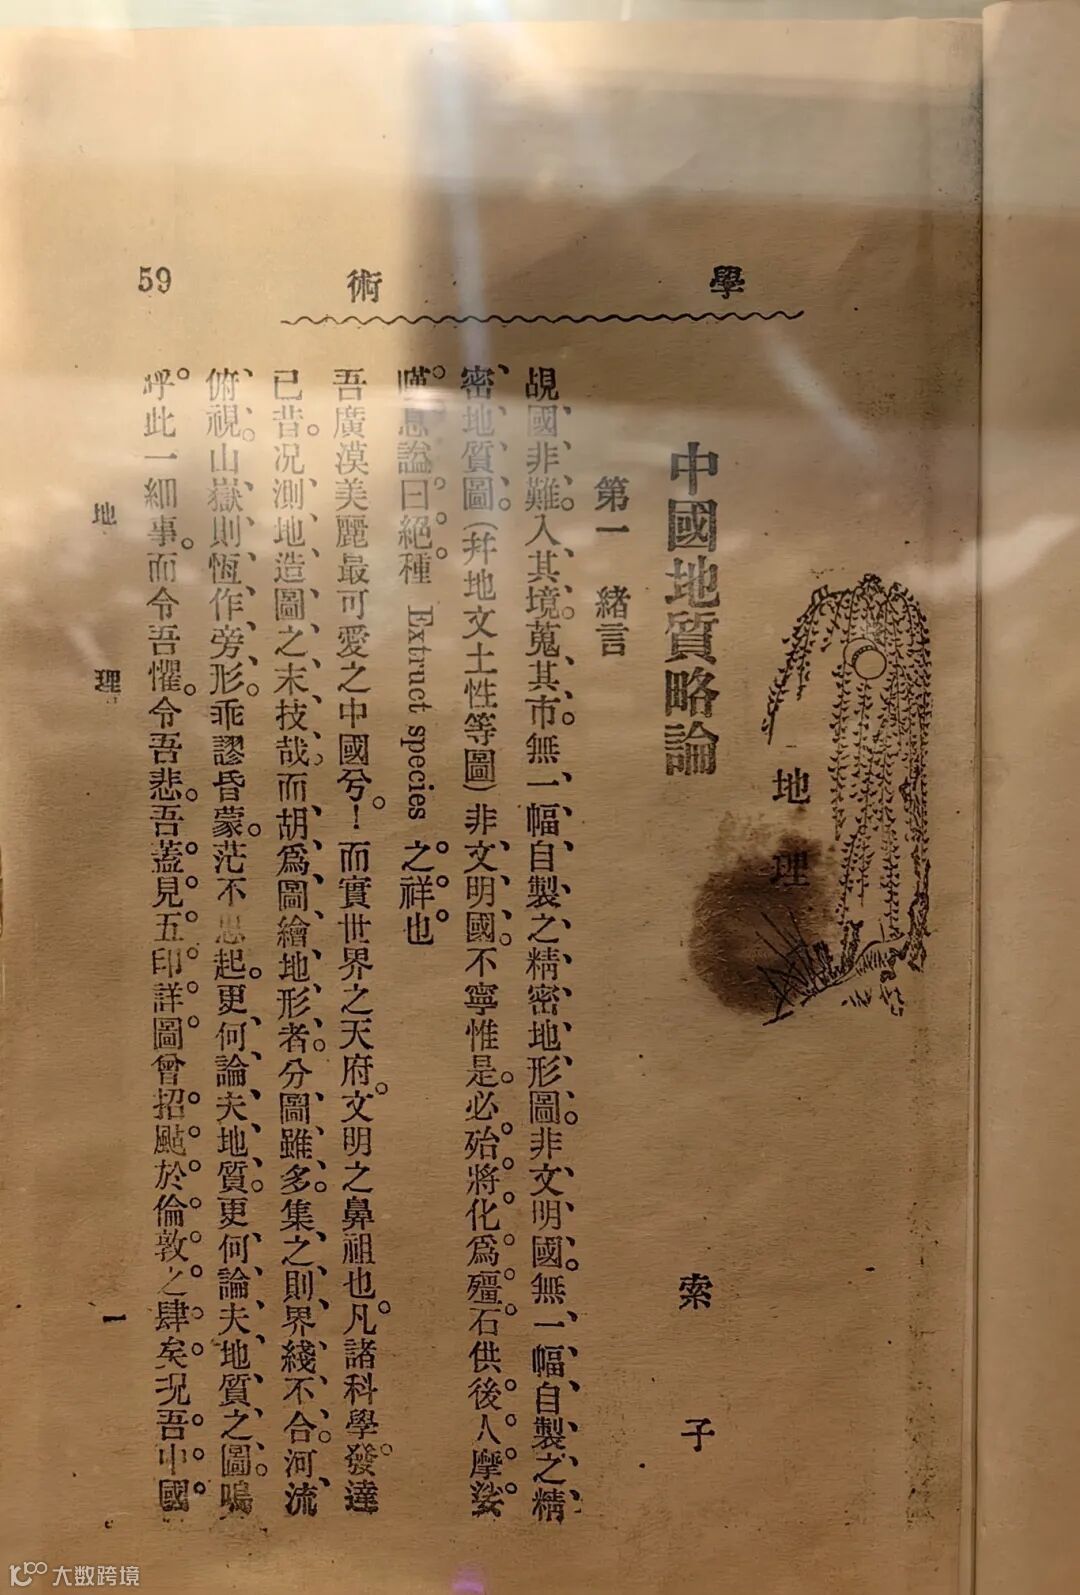 學術 59
地理
中國地質略論
索子
第一 緒言
覘國非難、入其境、蒐其市、無一幅自製之精密地形圖、非文明國。無一幅自製之精
密地質圖(幷地文土性等圖)非文明國。不寧惟是。必殆將化爲殭石供後人摩娑
嘆息謚曰絕種 Extruct species 之祥也
吾廣漠美麗最可愛之中國兮。!而實世界之天府。文明之鼻祖也。凡諸科學。發達
已昔。况測地造圖之末技哉。而胡爲圖繪地形者。分圖雖多。集之則界綫不合。河流
俯視。山嶽則恆作旁形。乖謬昏蒙。茫不思起。更何論夫地質。更何論夫地質之圖。嗚
呼。此一細事。而令吾懼。令吾悲。吾蓋見五印詳圖曾招颭於倫敦之肆矣。况吾中國
地理 一
大数跨境